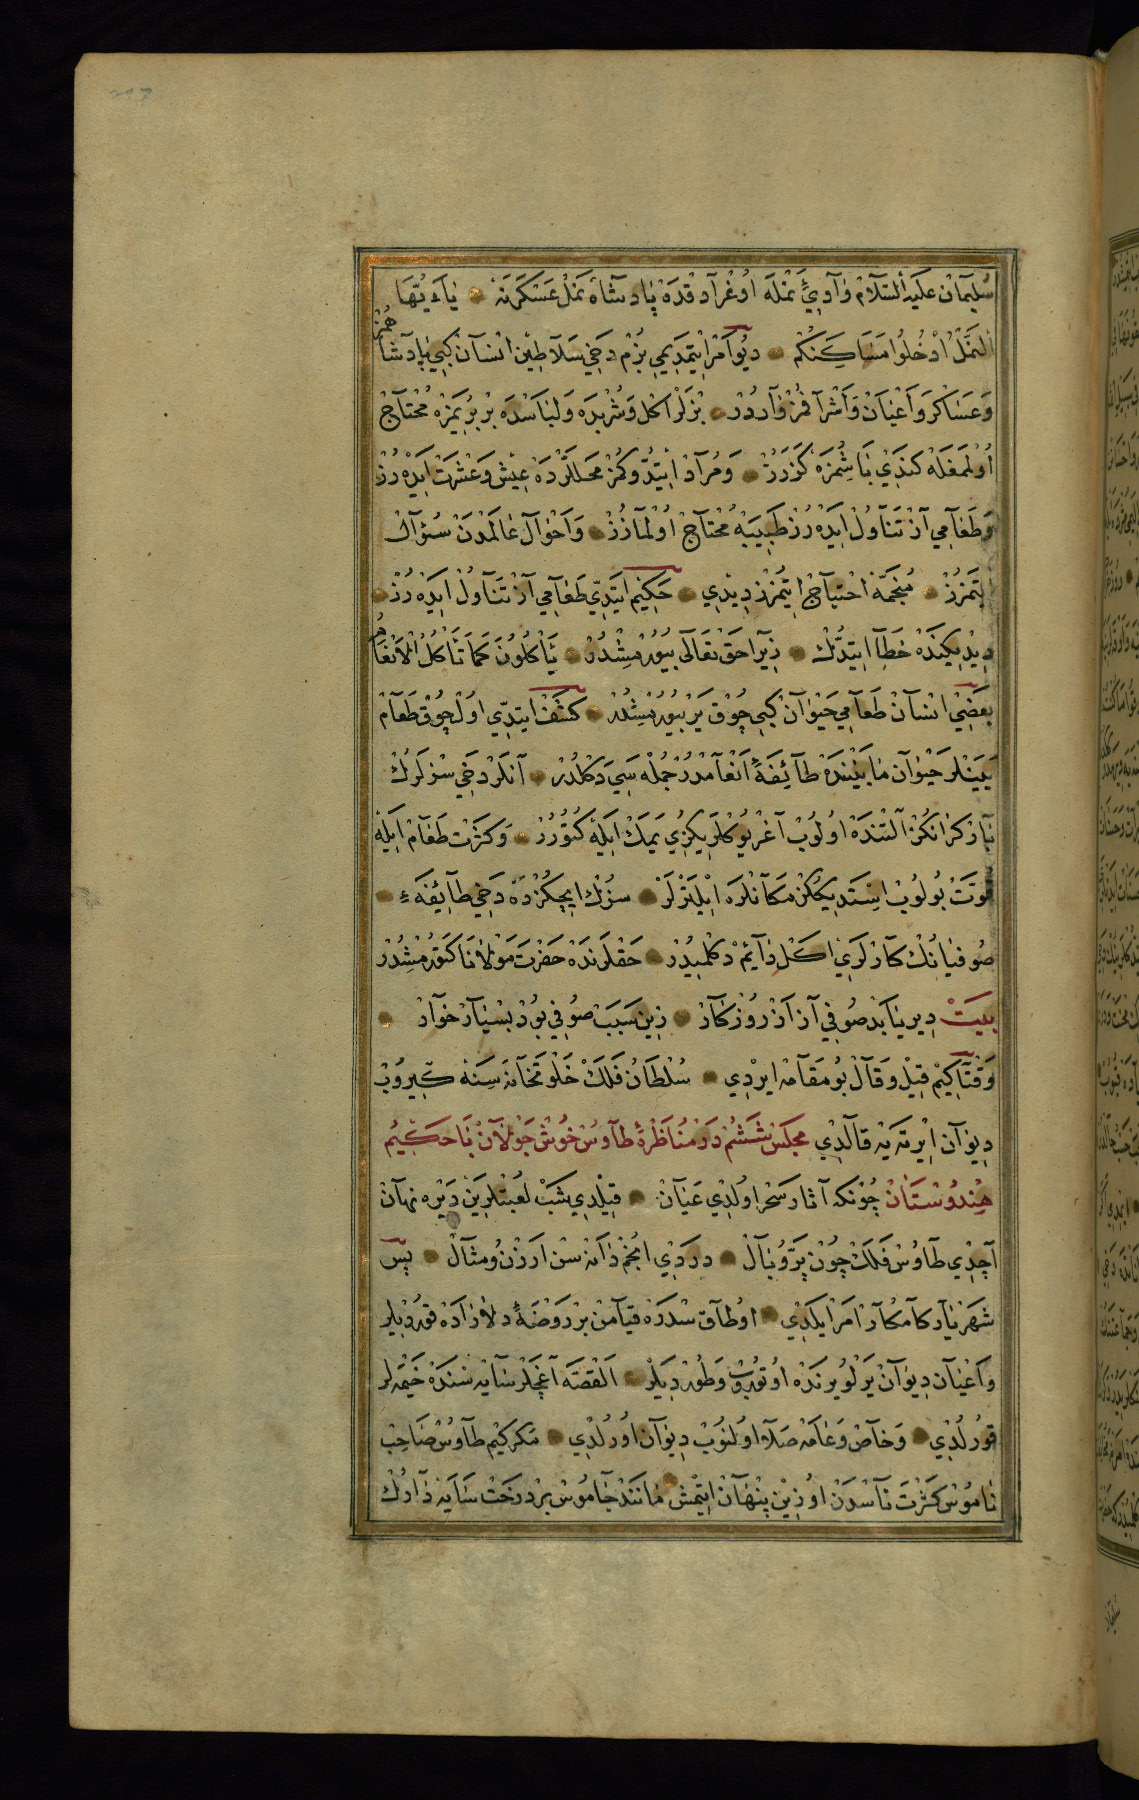 سُلَيمَان عَلَيهِ السَّلَام وَادِيِّ نَمْلَه اُوغْرَادُقْدَه پَادِشَاه نَمْل عَسْكَرِنَه يَا اَيُّهَا
النَّمْلُ ادْخُلُوا مَسَاكِنَكُم دِيُو اَمْر اِيْتمَدِيمِي بِزُم دَخِي سَلَاطِين اِنسَان كِبِي پَادِشَاهُمُز
وَعَسَاكِر وَاَعْيَان وَاَشْرَافُمُز وَارْدُر بِزلَر اَكْل وَشُرْبدَه وَلِبَاسْدَه بِر بِرُيمِزَه مُحْتَاج
اُولْمَغْلَه كَندِي بَاشُمُزَه كَزَرُز وَمُرَاد اِيتدُوكُمُز مَحَلْلَرْدَه عَيْش وَعِشْرَت اِيدَرُز
وَطَعَامِي آز تَنَاوُل اِيدَرُز طَبِيبَه مُحْتَاج اُولْمَازُز وَاَحْوَال عَالَمْدَن سُؤَال
اِيتمَزُز مُنَجِّمَه اِحْتِيَاج اِيتمُزُز دِيدِي حَكِيم اِيتدِي طَعَامِي آز تَنَاوُل اِيدَرُز
دِيدِيكِندَه خَطَا اِيتدُّك زِيرَا حَق تَعَالَى بِيُورمِشْدُر يَأْكُلُونَ كَمَا تَأْكُلُ الْاَنْعَامُ
بَعْضِي اِنسَان طَعَامِي حَيْوَان كِبِي چُوق يَر بِيُورمِشدُر كَشَف اِيتدِّي اُول چُوق طَعَام
يِيَنلَر حَيْوَان مَابَيْنِندَه طَائِفَۀ اَنْعَامدُر جُمْلَه سِي دَكلدُر آنلَر دَخِي سِزلَرُك
بَارگِرَانكُز آلتندَه اُولُوب آغْر يُوكلَرِيكِزِي يَمَك اِيلَه كتُورُر وَكَثْرَت طَعَام اِيلَه
قُوَّت بُولُوب اِسْتَدِيككز مَكَانلَرَه اِيْلتَرلَر سِزُك اِيچكُزدَه دَخِي طَائِفَۀ
صُوفِيَانُك كَارلَرِي اَكْل دَائِم دَكلمِيدُر حَقلَرندَه حَضرَت مَولَانَا كتورمِشدُر
بيت دِير يَابَد صُوفِي آز اَز رُوزگَار زِين سَبَب صُوفِي بُوَد بِسيَار خوَار
وَقتَاكِيم قِيل وَقَال بُو مَقَامَه ايردِي سُلطَان فَلَك خَلوتخَانَه سِنَه كِيرُوب
دِيوَان اِيرتَه يَه قَالدِي مَجلِس شَشُم دَر مُنَاظَرۀ طَاوُس خُوش جَولَان بَا حَكِيم
هِندُوستَان چُونكه آثَار سَحَر اولدِي عَيَان قِيلدِي شَب لُعبتلرِين دِيرَه نِهَان
آچدِي طَاوُس فَلَك چُون پَرّ وبَال دردِي انجُم دَانه سن اَرزن ومِثَال پس
شَهريَار كَامكَار اَمر ايلدِي اوطَاق سدرَه قيامن بر رَوضَۀ دلارَادَه قوردِيلر
وَاَعيَان دِيوَان يَرلُو يرندَه اُوتُورُب وَطُوردِيلَر اَلقِصَّه آغَچلر سَايَه سندَه خَيمَه لر
قورُلدِي وَخَاص وَعَامَه صَلَا اولنوب دِيوَان اورُلدِي مكر كِيم طَاوُس صَاحِب
نَامُوس كَثرَت نَاسدَن اوزِين پِنهَان ايتمِش مَانَند جَامُوس بر دَرَخت سَايَه دَارُك